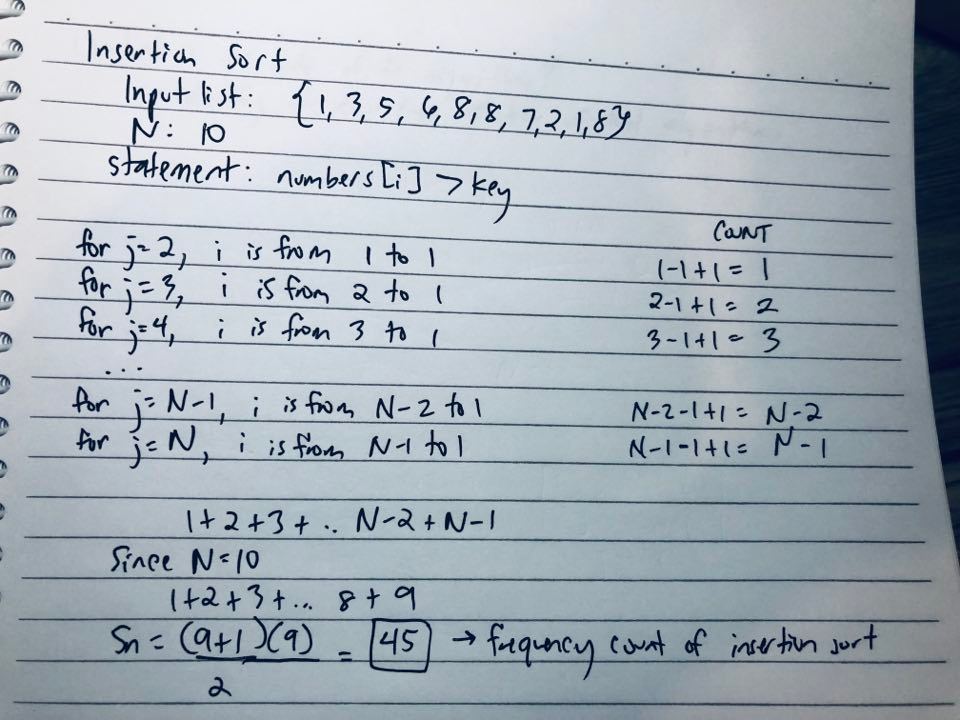 Insertion Sort
Input list: {1, 3, 5, 6, 8, 8, 7, 2, 1, 8}
N: 10
statement: numbers[i] > key
COUNT
for j=2, i is from 1 to 1 1-1+1 = 1
for j=3, i is from 2 to 1 2-1+1 = 2
for j=4, i is from 3 to 1 3-1+1 = 3
...
for j=N-1, i is from N-2 to 1 N-2-1+1 = N-2
for j=N, i is from N-1 to 1 N-1-1+1 = N-1
1+2+3+.. N-2+N-1
Since N=10
1+2+3+... 8+9
Sn = (9+1)(9) = 45 → frequency count of insertion sort
2